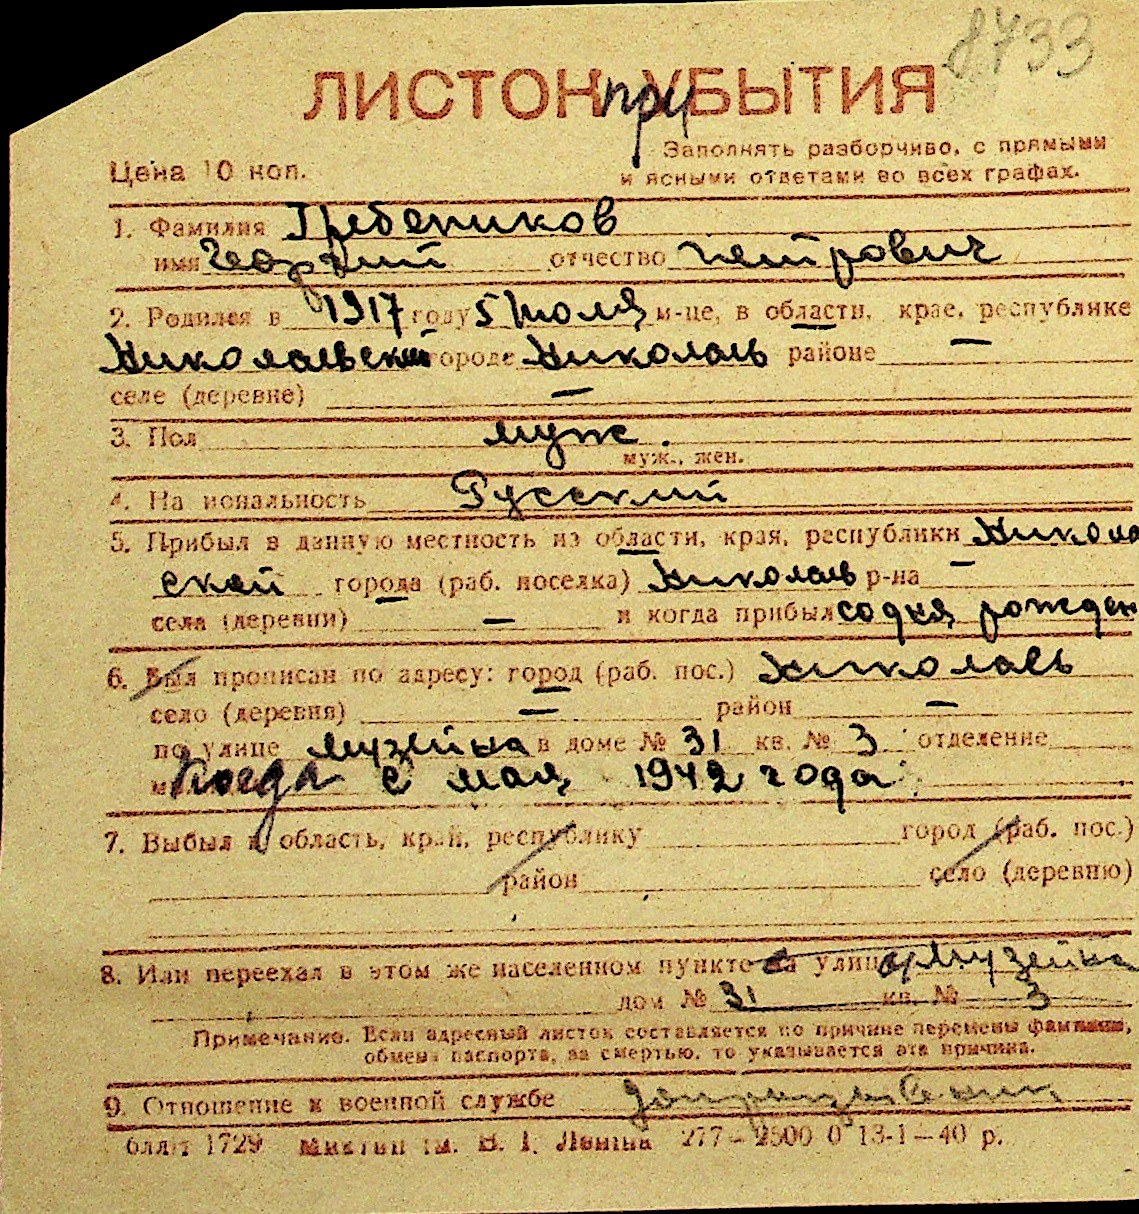 8733
ЛИСТОК при УБЫТИЯ
Цена 10 коп.
Заполнять разборчиво, с прямыми
и ясными ответами во всех графах.
1. Фамилия Гребеников
имя Георгий отчество Петрович
2. Родился в 1917 году 5 Июля м-це, в области, крае, республике
Николаевской городе Николаев районе —
селе (деревне) —
3. Пол муж.
муж., жен.
4. Национальность Русский
5. Прибыл в данную местность из области, края, республики Никола
ской города (раб. поселка) Николаев р-на —
села (деревни) — и когда прибыл со дня рожден
6. Был прописан по адресу: город (раб. пос.) Николаев
село (деревня) — район —
по улице Музейна в доме № 31 кв. № 3 отделение
Когда с мая 1942 года
7. Выбыл в область, край, республику город (раб. пос.)
район село (деревню)
8. Или переехал в этом же населенном пункте на улицу Музейна
дом № 31 кв. № 3
Примечание. Если адресный листок составляется по причине перемены фамилии,
обмена паспорта, за смертью, то указывается эта причина.
9. Отношение к военной службе
1729 им. В. І. Леніна 277 – 2500 0 13-1–40 р.